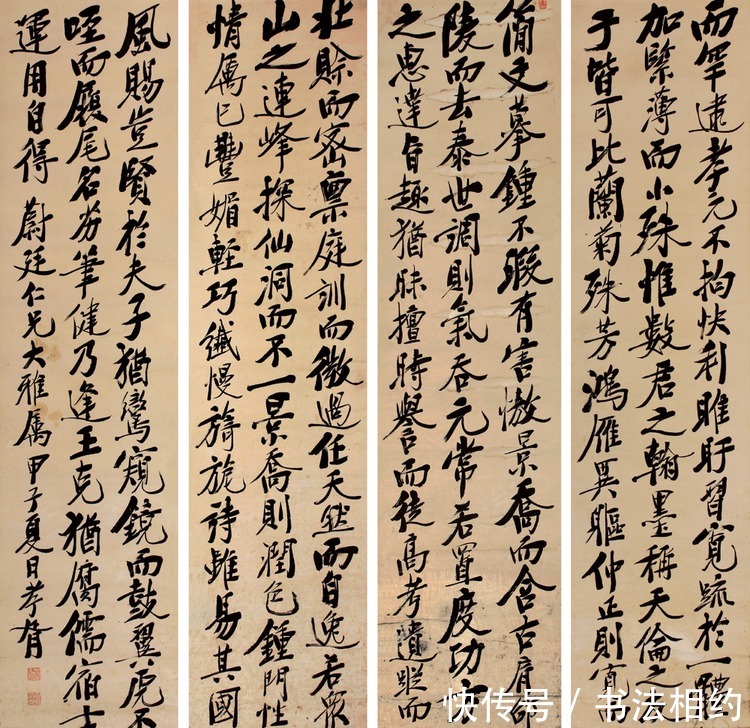 而罕逮孝元不拘快利睢盱習寬疏於一體
加緊薄而小殊惟數君之翰墨稱天倫之
于皆可比蘭菊殊芳鴻雁異軀仲正則寬
簡文摹鍾不暇有害傲景喬而含古肩邵
陵而去泰世調則氣吞元常若置度功
之惠達旨趣猶昧擅時譽而徒高考遺蹤而
壯賒而密禀庭訓而微過任天然而自逸若衆
山之連峰探仙洞而不一景喬則潤色鍾門性
情厲已豐媚輕巧纖慢旖旎詩雖易其國
風賜豈賢於夫子猶鸞窺鏡而鼓翼虎不
咥而履尾名芬筆健乃逢王克猶腐儒宿士
運用自得 蔚廷仁兄大雅属 甲子夏日孝胥
快传号 / 书法相约